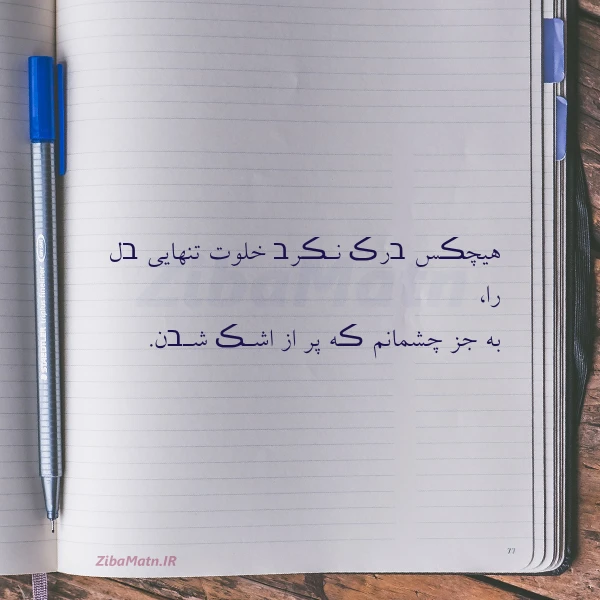 هیچکس درک نکرد خلوت تنهایی دل
را،
به جز چشمانم که پر از اشک شدن.
ZibaMatn.IR
77
STAEDTLER triplus fineliner